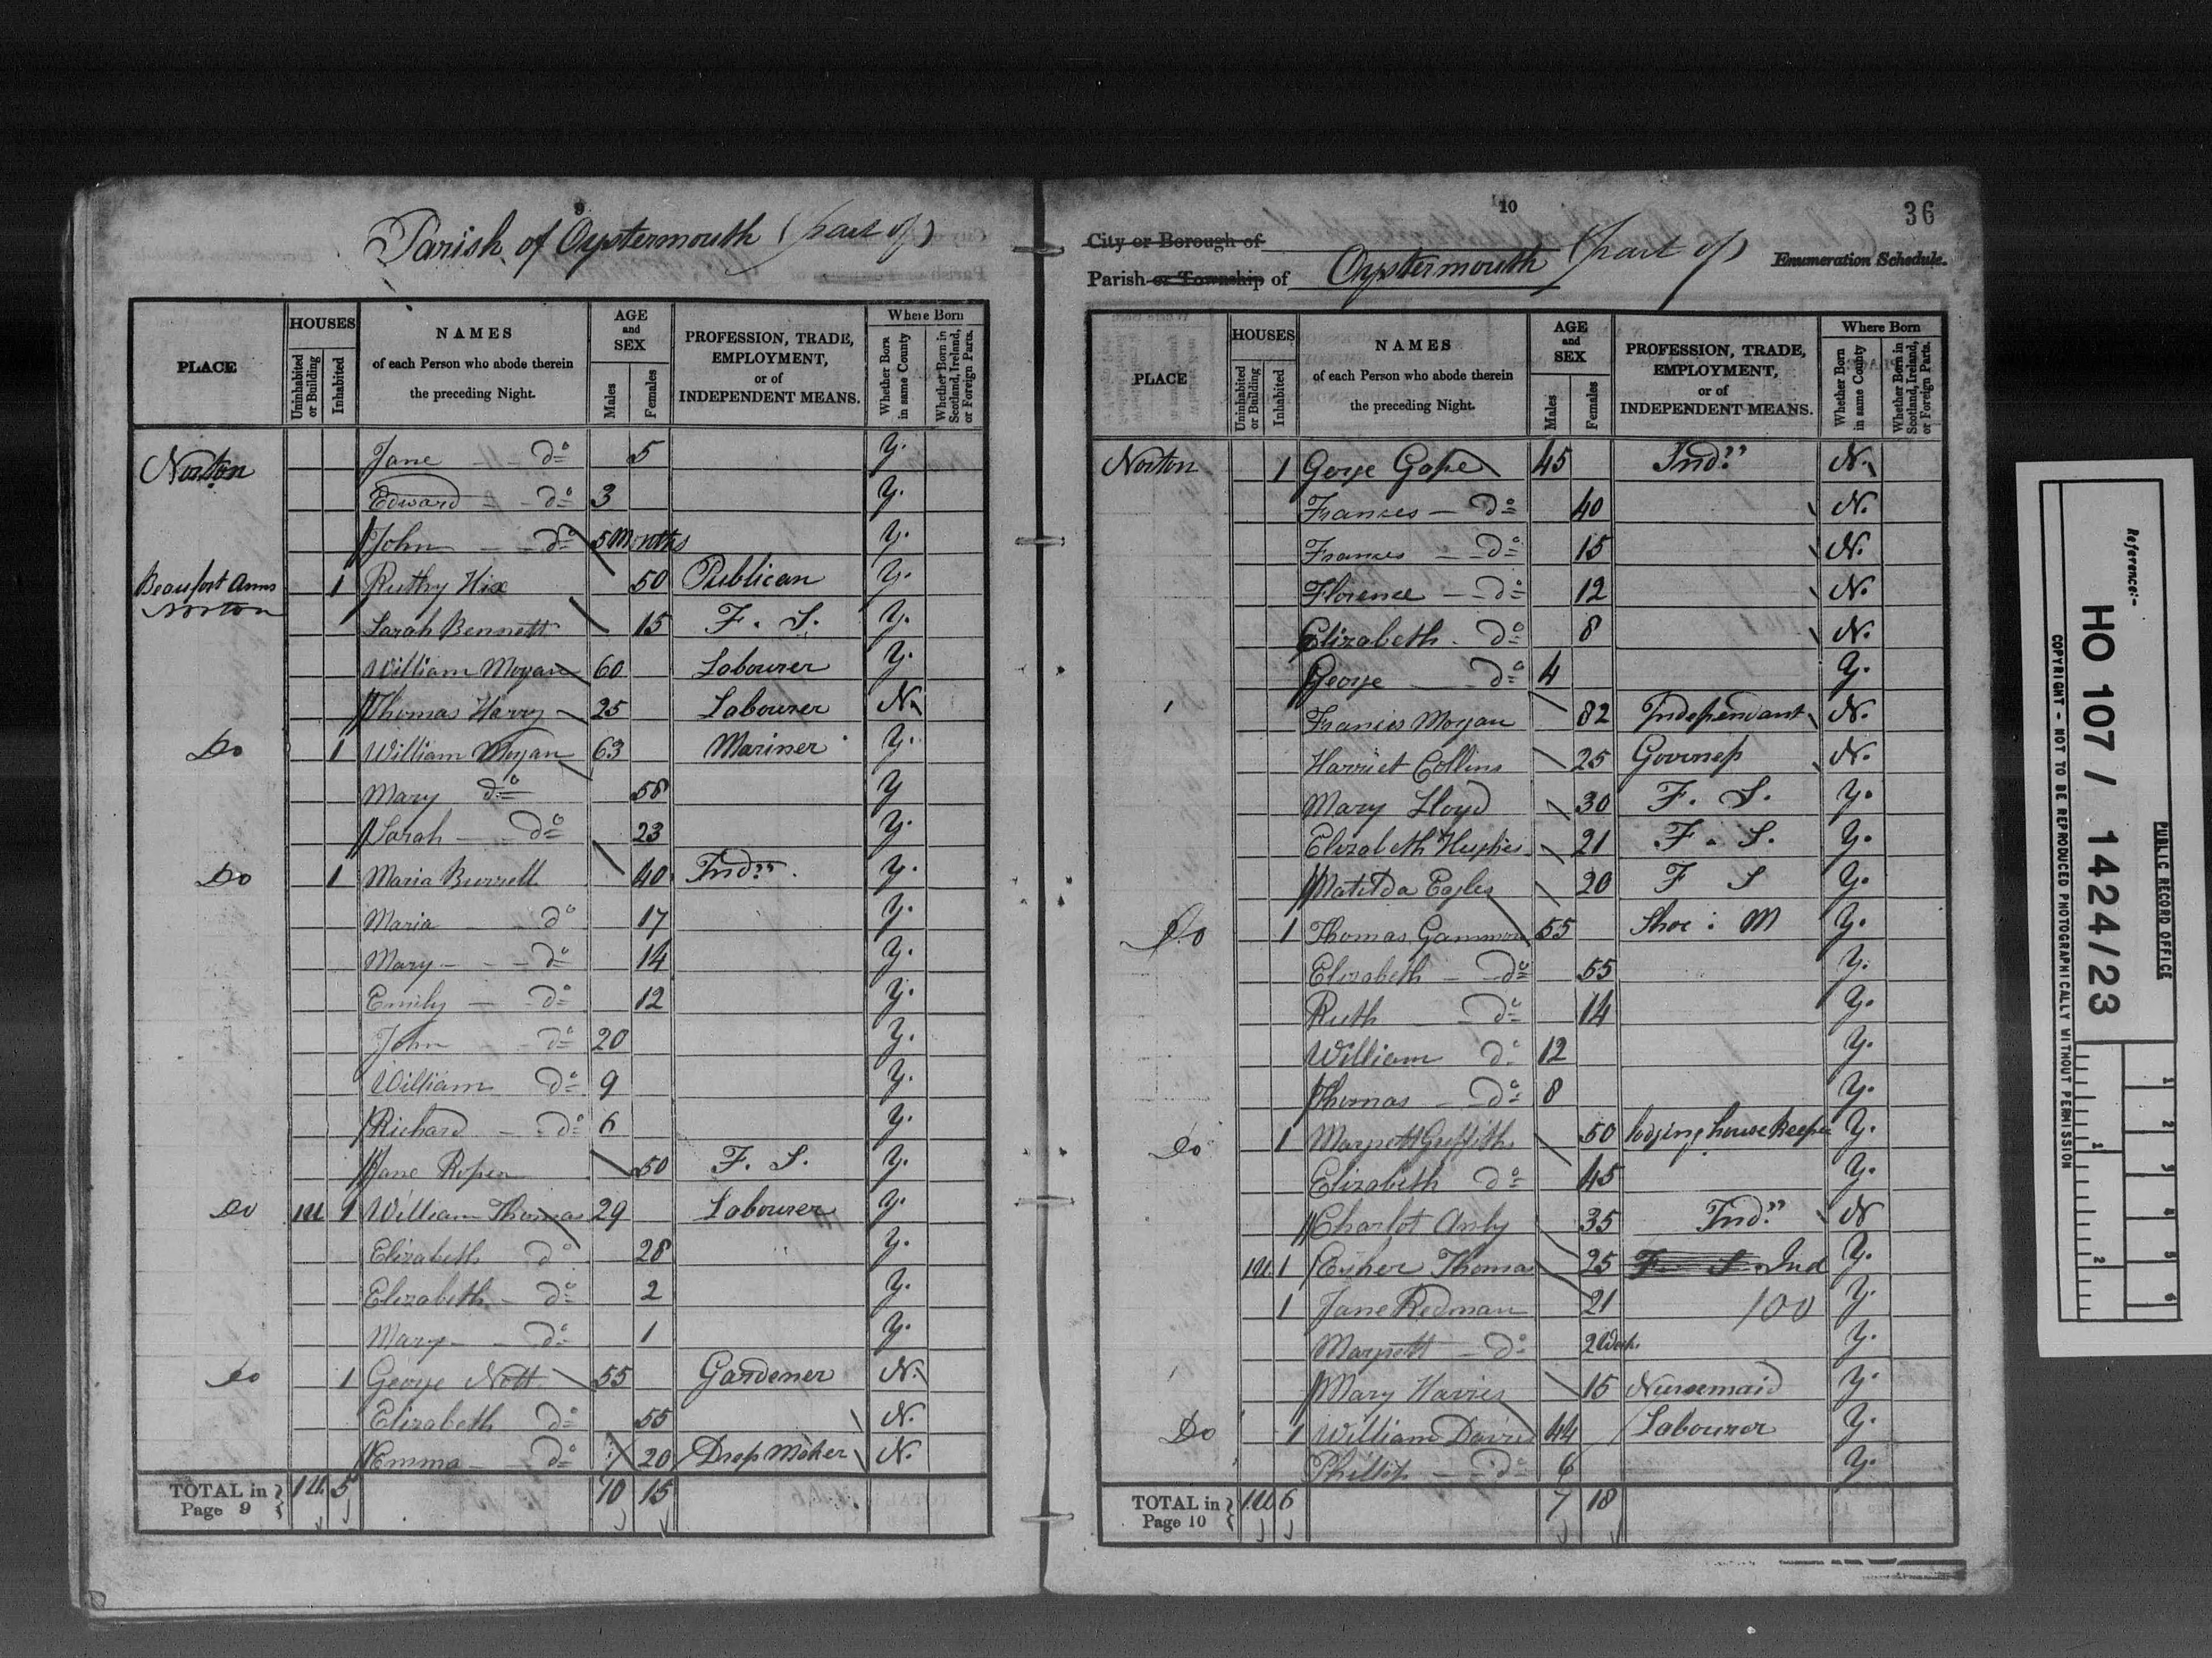 9
Parish of Oystermouth (part of)
PLACE
HOUSES
Uninhabited or Building
Inhabited
NAMES
of each Person who abode therein
the preceding Night.
AGE
and
SEX
Males
Females
PROFESSION, TRADE,
EMPLOYMENT,
or of
INDEPENDENT MEANS.
Where Born
Whether Born in same County
Whether Born in Scotland, Ireland, or Foreign Parts.
Norton Jane do 5 Y.
Edward do 3 Y.
John do 5 Months Y.
Beaufort Arms Norton 1 Ruthy Hix 50 Publican Y.
Sarah Bennett 15 F. S. Y.
William Mogan 60 Labourer Y.
Thomas Harry 25 Labourer N.
Do 1 William Mogan 63 Mariner Y.
Mary do 58 Y
Sarah do 23 Y.
Do 1 Maria Burrell 40 Ind. Y.
Maria do 17 Y.
Mary do 14 Y.
Emily do 12 Y.
John do 20 Y.
William do 9 Y.
Richard do 6 Y.
Jane Roper 50 F. S. Y.
Do 1U 1 William Thomas 29 Labourer Y.
Elizabeth do 28 Y.
Elizabeth do 2 Y.
Mary do 1 Y.
Do 1 George Nott 55 Gardener N.
Elizabeth do 55 N.
Emma do 20 Dress Maker N.
TOTAL in Page 9 1U. 5 10 15
10
36
City or Borough of
Parish or Township of Oystermouth (part of)
Enumeration Schedule.
PLACE
HOUSES
Uninhabited or Building
Inhabited
NAMES
of each Person who abode therein
the preceding Night.
AGE
and
SEX
Males
Females
PROFESSION, TRADE,
EMPLOYMENT,
or of
INDEPENDENT MEANS.
Where Born
Whether Born in same County
Whether Born in Scotland, Ireland, or Foreign Parts.
Norton 1 George 45 Ind. N.
Frances do 40 N.
Frances do 15 N.
Florence do 12 N.
Elizabeth do 8 N.
George do 4 Y.
Frances Mogan 82 Independant N.
Harriet Collins 25 Governess N.
Mary Lloyd 30 F. S. Y.
Elizabeth Hughes 21 F. S. Y.
Matilda Eagles 20 F S Y.
Do 1 Thomas Gammon 55 Shoe: M Y.
Elizabeth do 55 Y.
Ruth do 14 Y.
William do 12 Y.
Thomas do 8 Y.
Do 1 Margrett Griffiths 50 lodging house Keeper Y.
Elizabeth do 45 Y.
Charlot 35 Ind. N
1U. 1 Esher Thomas 25 F S Ind Y.
1 Jane Redman 21 100 Y.
Margrett do 2 Week. Y.
Mary Havies 15 Nursemaid Y.
Do 1 William Davies 44 Labourer Y.
Phillip do 6 Y.
TOTAL in Page 10 1U 6 7 18
Reference:-
HO 107 / 1424/23
PUBLIC RECORD OFFICE
COPYRIGHT - NOT TO BE REPRODUCED PHOTOGRAPHICALLY WITHOUT PERMISSION
1
2
3
4
5
6
1
2